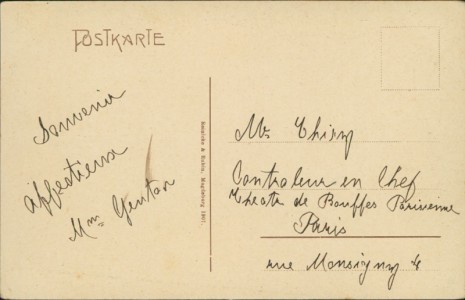 POSTKARTE
Souvenir
affectieux
Mme Gustan
Reinicke & Rubin, Magdeburg 1907.
Mr Thiry
Controleur en Chef
Theatr de Bouffes Parisienne
Paris
rue Monsigny 4